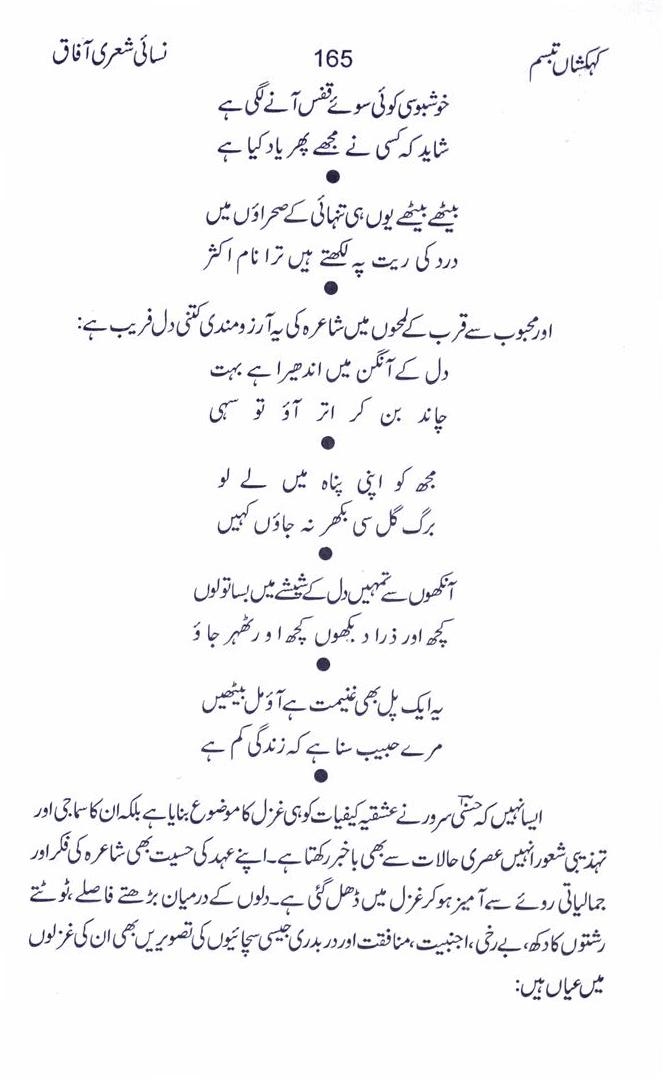 کہکشاں تبسم 165 نسائی شعری آفاق
خوشبو سی کوئی سوئے قفس آنے لگی ہے
شاید کہ کسی نے مجھے پھر یاد کیا ہے
●
بیٹھے بیٹھے یوں ہی تنہائی کے صحراؤں میں
درد کی ریت پہ لکھتے ہیں ترا نام اکثر
●
اور محبوب سے قرب کے لمحوں میں شاعرہ کی یہ آرزومندی کتنی دل فریب ہے:
دل کے آنگن میں اندھیرا ہے بہت
چاند بن کر اتر آؤ تو سہی
●
مجھ کو اپنی پناہ میں لے لو
برگ گل سی بکھر نہ جاؤں کہیں
●
آنکھوں سے تمہیں دل کے شیشے میں بسا تو لوں
کچھ اور ذرا دیکھوں کچھ اور ٹھہر جاؤ
●
یہ ایک پل بھی غنیمت ہے آؤ مل بیٹھیں
مرے حبیب سنا ہے کہ زندگی کم ہے
●
ایسا نہیں کہ حسنیٰ سرور نے عشقیہ کیفیات کو ہی غزل کا موضوع بنایا ہے بلکہ ان کا سماجی اور
تہذیبی شعور انہیں عصری حالات سے بھی باخبر رکھتا ہے۔ اپنے عہد کی حسیت بھی شاعرہ کی فکر اور
جمالیاتی روئے سے آمیز ہو کر غزل میں ڈھل گئی ہے۔ دلوں کے درمیان بڑھتے فاصلے، ٹوٹتے
رشتوں کا دکھ، بے رخی، اجنبیت، منافقت اور دربدری جیسی سچائیوں کی تصویریں بھی ان کی غزلوں
میں عیاں ہیں: